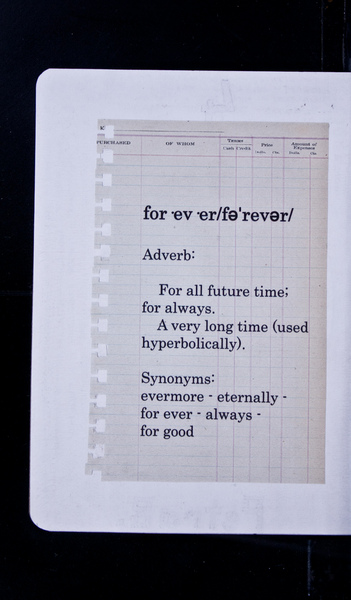 PURCHASED OF WHOM Terms Price Amount of
Cash Credit Expenses
for ·ev ·er/fə'revər/
Adverb:
For all future time;
for always.
A very long time (used
hyperbolically).
Synonyms:
evermore - eternally -
for ever - always -
for good